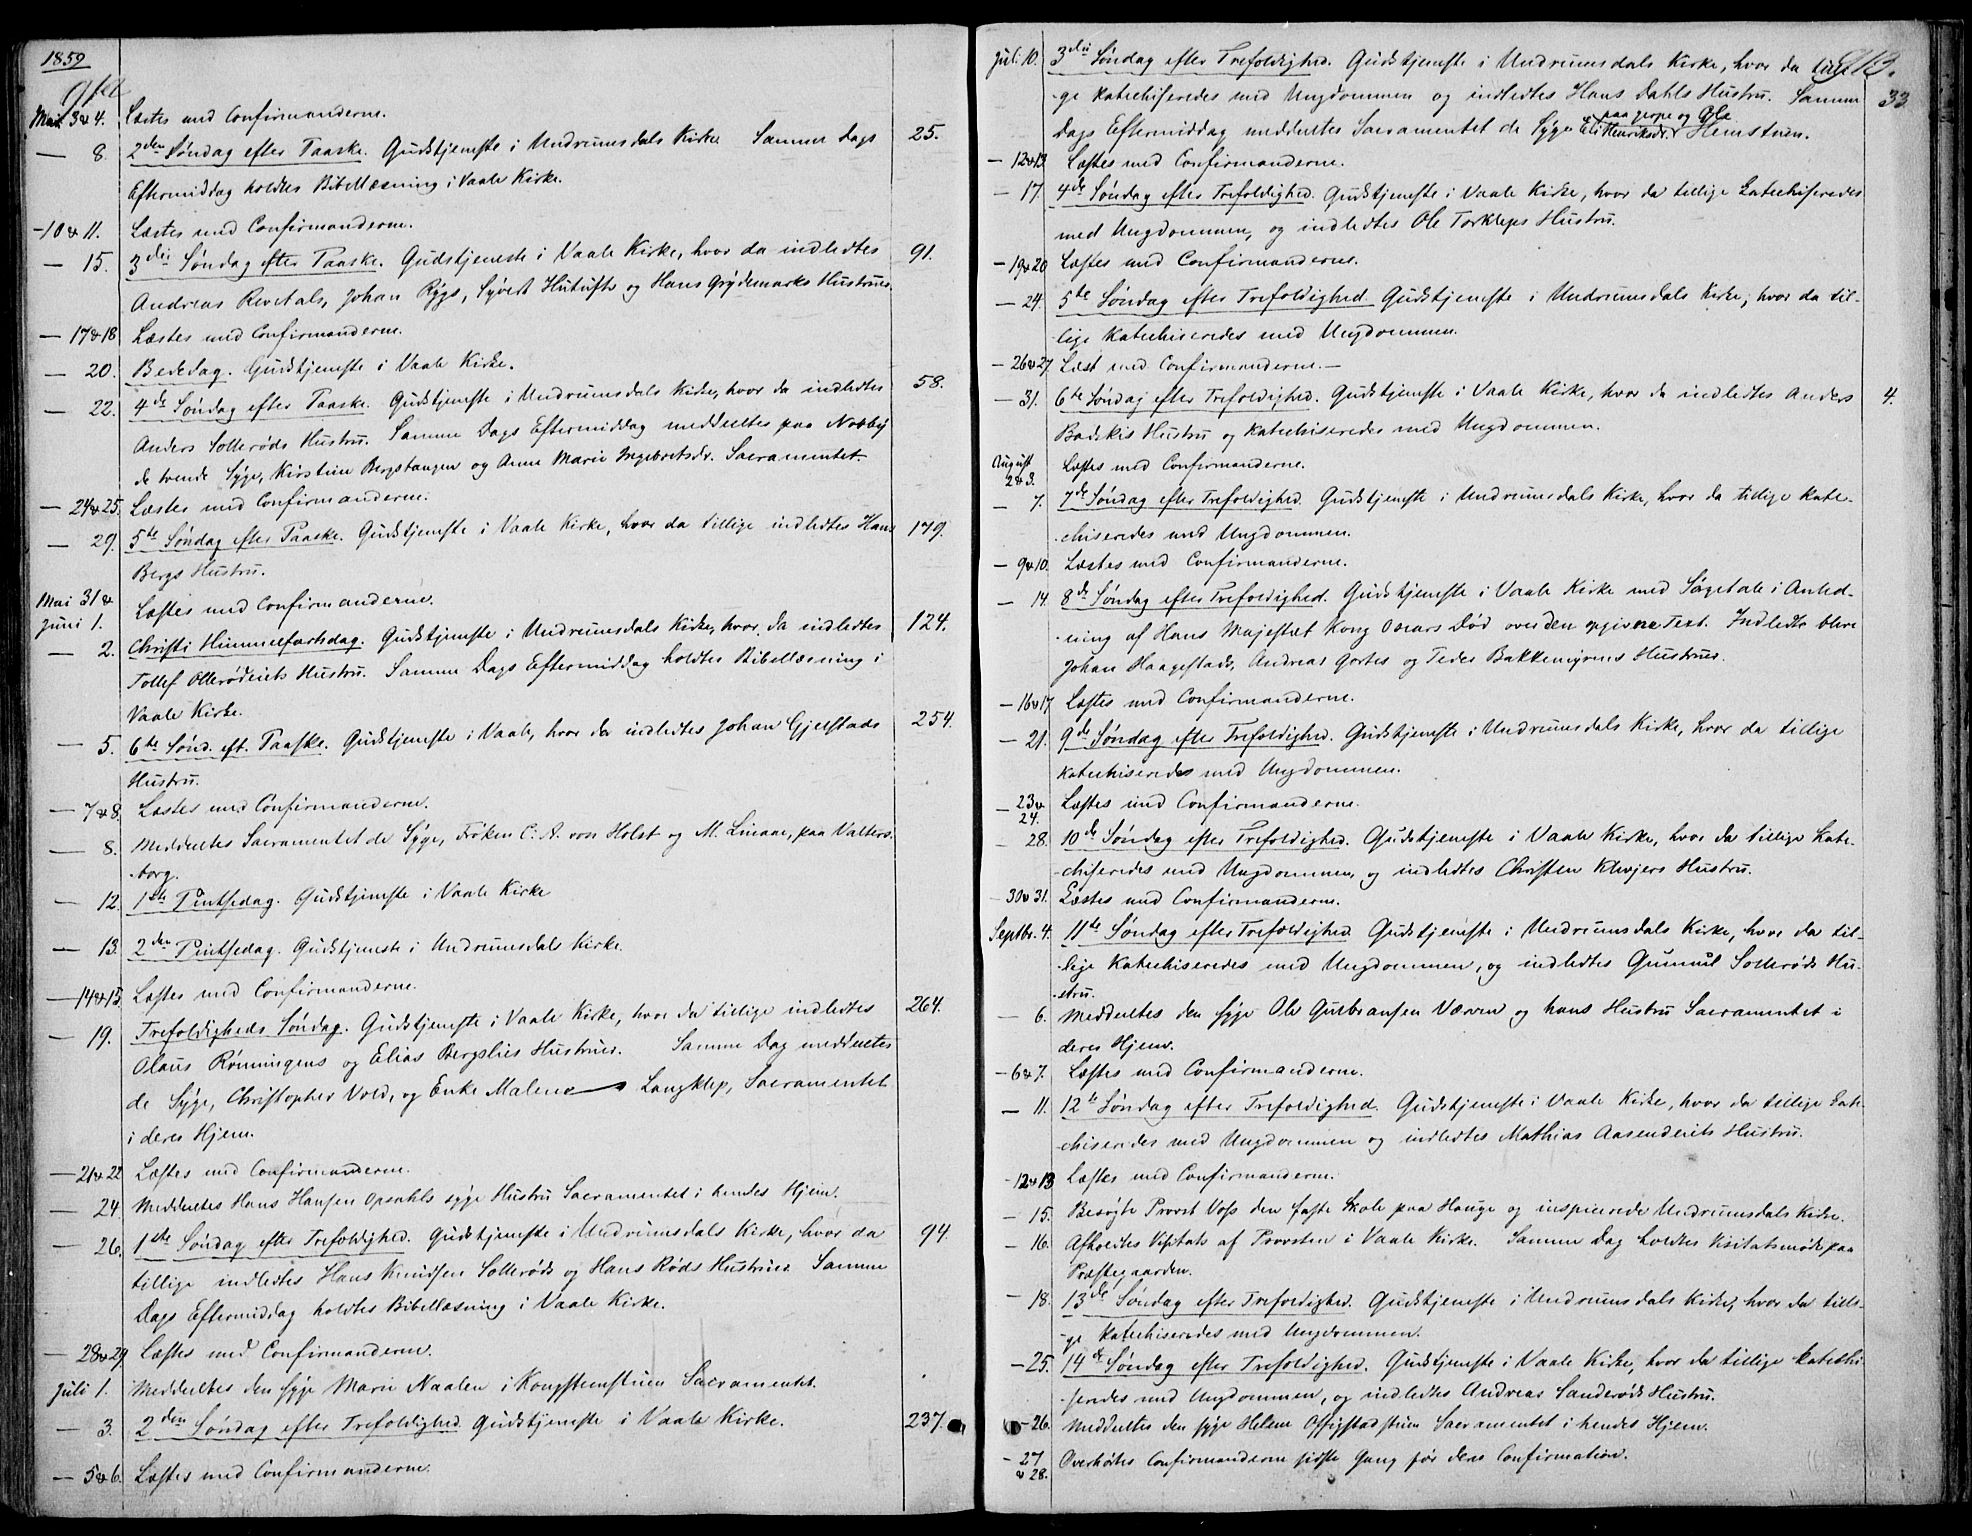 1859
912
Mai 3 & 4. Læstes med Confirmanderne.
— 8. 2den Søndag efter Paaske. Gudstjeneste i Undrumsdals Kirke. Samme Dags 25.
Eftermiddag holdtes Bibellæsning i Vaale Kirke.
- 10 & 11. Læstes med Confirmanderne.
— 15. 3die Søndag efter Paaske. Gudstjeneste i Vaale Kirke, hvor da indledtes 91.
Andreas Revetals, Johan Rygs, Syvert Hutufts og Hans Grydemarks Hustruer.
— 17 & 18 Læstes med Confirmanderne.
— 20. Bededag. Gudstjeneste i Vaale Kirke.
— 22. 4de Søndag efter Paaske. Gudstjeneste i Undrumsdals Kirke, hvor da indledtes 58.
Anders Sollerøds Hustru. Samme Dags Eftermiddag meddeeltes paa Nordby
de trende Syge, Kirstine Bergstangen og Anne Marie Ingebretsdr. Sacramentet.
— 24 & 25. Læstes med Confirmanderne.
— 29. 5te Søndag efter Paaske. Gudstjeneste i Vaale Kirke, hvor da tillige indledtes Hans 179.
Bergs Hustru.
Mai 31 & Læstes med Confirmanderne.
Juni 1.
— 2. Christi Himmelfartsdag. Gudstjeneste i Undrumsdals Kirke, hvor da indledtes 124.
Tollef Ollerødeiets Hustru. Samme Dags Eftermiddag holdtes Bibellæsning i
Vaale Kirke.
— 5. 6te Sønd. eft. Paaske. Gudstjeneste i Vaale, hvor da indledtes Johan Gjelstads 254.
Hustru.
— 7 & 8. Læstes med Confirmanderne.
— 8. Meddeeltes Sacramentet de Syge, Frøken C. A. von Holst og M. Linaae, paa Valters-
borg.
— 12. 1ste Pintsedag. Gudstjeneste i Vaale Kirke
— 13. 2den Pintsedag. Gudstjeneste i Undrumsdals Kirke.
— 14 & 15. Læstes med Confirmanderne.
— 19. Trefoldigheds Søndag. Gudstjeneste i Vaale Kirke, hvor da tillige indledtes 264.
Olaus Rønningens og Elias Bergslies Hustruer. Samme Dag meddeeltes
de Syge, Christopher Vold, og Enke Malene Langklep, Sacramentet
i deres Hjem.
— 21 & 22 Læstes med Confirmanderne.
— 24 Meddeeltes Hans Hansen Opsahls syge Hustru Sacramentet i hendes Hjem.
— 26. 1ste Søndag efter Trefoldighed. Gudstjeneste i Undrumsdals Kirke, hvor da 94.
tillige indledtes Hans Knudsen Sollerøds og Hans Røds Hustruer. Samme
Dags Eftermiddag holdtes Bibellæsning i Vaale Kirke.
— 28 & 29 Læstes med Confirmanderne.
Juli 1. Meddeeltes den syge Marie Naalen i Kongsteinstuen Sacramentet.
— 3. 2den Søndag efter Trefoldighed. Gudstjeneste i Vaale Kirke. 237.
— 5 & 6. Læstes med Confirmanderne.
913.
Juli 10. 3die Søndag efter Trefoldighed. Gudstjeneste i Undrumsdals Kirke, hvor da tilli-
ge katechiseredes med Ungdommen og indledtes Hans Dahls Hustru. Samme 33
paa Jerpe og Ole
Dags Eftermiddag meddeeltes Sacramentet de Syge Eli Henriksdr. Heimstuen.
— 12 & 13. Læstes med Confirmanderne.
— 17. 4de Søndag efter Trefoldighed. Gudstjeneste i Vaale Kirke, hvor da tillige katechiseredes
med Ungdommen, og indledtes Ole Torkleps Hustru.
— 19 & 20 Læstes med Confirmanderne.
— 24. 5te Søndag efter Trefoldighed. Gudstjeneste i Undrumsdals Kirke, hvor da til-
lige katechiseredes med Ungdommen.
— 26 & 27. Læst med Confirmanderne. —
— 31. 6te Søndag efter Trefoldighed. Gudstjeneste i Vaale Kirke, hvor da indledtes Anders 4.
Badskis Hustru og katechiseredes med Ungdommen.
August Læstes med Confirmanderne.
2 & 3.
— 7. 7de Søndag efter Trefoldighed. Gudstjeneste i Undrumsdals Kirke, hvor da tillige kate-
chiseredes med Ungdommen.
— 9 & 10. Læstes med Confirmanderne.
— 14. 8de Søndag efter Trefoldighed. Gudstjeneste i Vaale Kirke med Sørgetale i Anled-
ning af Hans Majestæt Kong Oscars Død over den opgivne Text. Indledte bleve
Johan Haagestads, Andreas Gortes og Peder Bakkemyrens Hustruer.
— 16 & 17 Læstes med Confirmanderne.
— 21. 9de Søndag efter Trefoldighed. Gudstjeneste i Undrumsdals Kirke, hvor da tillige
katechiseredes med Ungdommen.
— 23 & Læstes med Confirmanderne.
24.
— 28. 10de Søndag efter Trefoldighed. Gudstjeneste i Vaale Kirke, hvor da tillige kate-
chiseredes med Ungdommen, og indledtes Christen Klevjers Hustru.
— 30 & 31. Læstes med Confirmanderne.
Septbr. 4. 11te Søndag efter Trefoldighed. Gudstjeneste i Undrumsdals Kirke, hvor da til-
lige katechiseredes med Ungdommen, og indledtes Gunnul Sollerøds Hu-
stru.
— 6. Meddeeltes den syge Ole Gulbransen Værven og hans Hustru Sacramentet i
deres Hjem.
— 6 & 7. Læstes med Confirmanderne.
— 11. 12te Søndag efter Trefoldighed. Gudstjeneste i Vaale Kirke, hvor da tillige kate-
chiseredes med Ungdommen og indledtes Mathias Aasendeiets Hustru.
— 12 & 13 Læstes med Confirmanderne.
— 15. Besøgte Provst Voss den faste Skole paa Hauge og inspicerede Undrumsdals Kirke.
— 16. Afholdtes Visitats af Provsten i Vaale Kirke. Samme Dag holdtes Visitatsmøde paa
Præstegaarden.
— 18. 13de Søndag efter Trefoldighed. Gudstjeneste i Undrumsdals Kirke, hvor da tilli-
ge katechiseredes med Ungdommen.
— 25. 14de Søndag efter Trefoldighed. Gudstjeneste i Vaale Kirke, hvor da tillige katechi-
seredes med Ungdommen, og indledtes Andreas Sanderøds Hustru.
— 26. Meddeeltes den syge Helene Ofsigstadstuen Sacramentet i hendes Hjem.
— 27 Overhørtes Confirmanderne sidste Gang før deres Confirmation.
& 28.